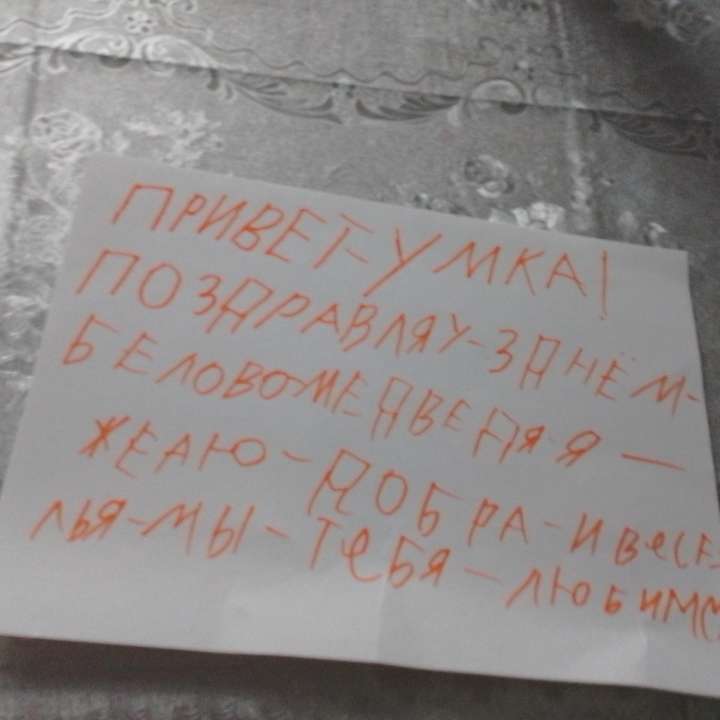 ПРИВЕТ-УМКА!
ПОЗДРАВЛЯУ-ЗДНЁМ-
БЕЛОВО-МЕДВЕДЯ-Я —
ЖЕЛЮ-ДОБРА-И ВЕСЕ-
ЛЬЯ-МЫ-ТЕБЯ-ЛЮБИМ